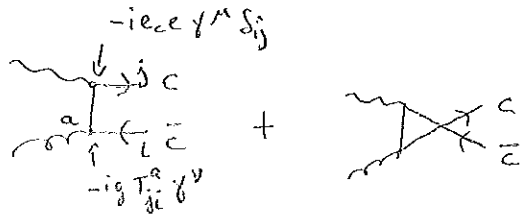 -ie_c e γ^μ δ_ij
j c
a
i c̄
-ig T^a_ji γ^ν
+
c
c̄